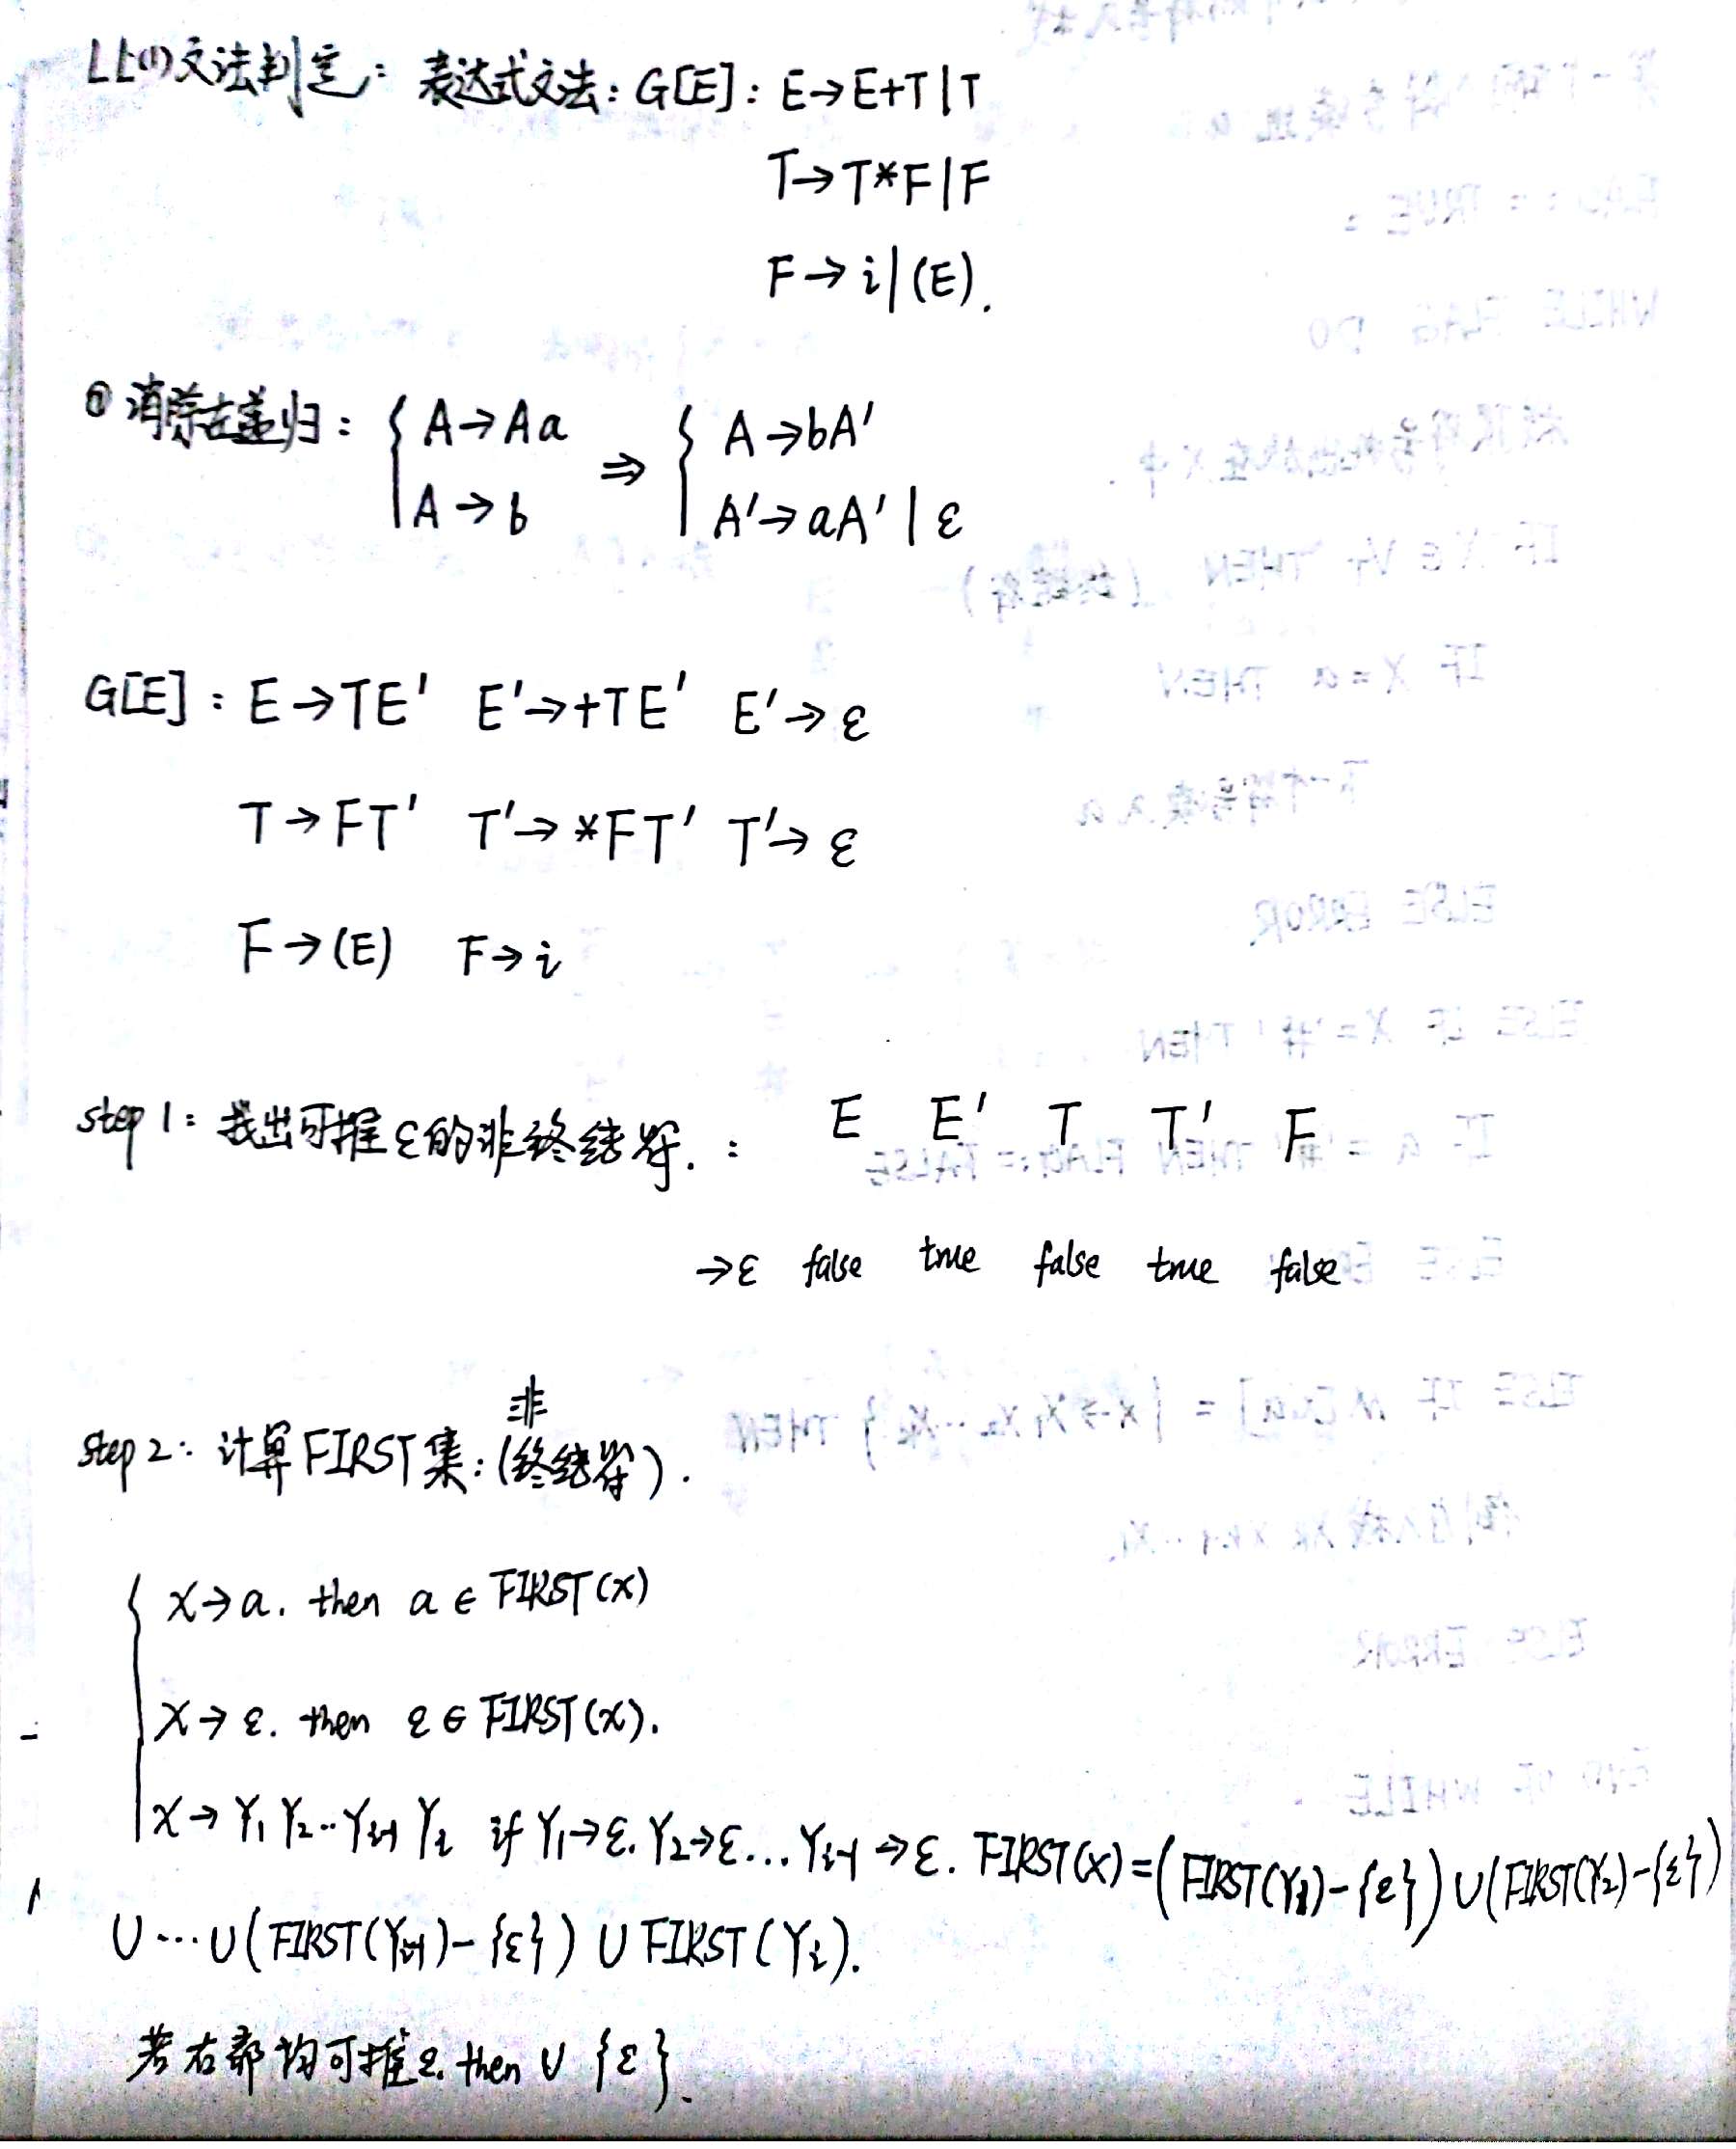 LL(1)文法判定：表达式文法：G[E]：E→E+T|T
T→T*F|F
F→i|(E).
① 消除左递归：{ A→Aa ⇒ { A→bA'
A→b A'→aA' | ε
G[E]：E→TE' E'→+TE' E'→ε
T→FT' T'→*FT' T'→ε
F→(E) F→i
step 1：找出可推ε的非终结符.： E E' T T' F
→ε false true false true false
非
step 2：计算FIRST集：(终结符).
{ X→a. then a∈FIRST(X)
X→ε. then ε∈FIRST(X).
X→Y₁Y₂…Yᵢ₋₁Yᵢ if Y₁→ε. Y₂→ε…Yᵢ₋₁→ε. FIRST(X)=(FIRST(Y₁)-{ε})∪(FIRST(Y₂)-{ε})
∪…∪(FIRST(Yᵢ₋₁)-{ε})∪FIRST(Yᵢ).
若右部均可推ε. then ∪{ε}.